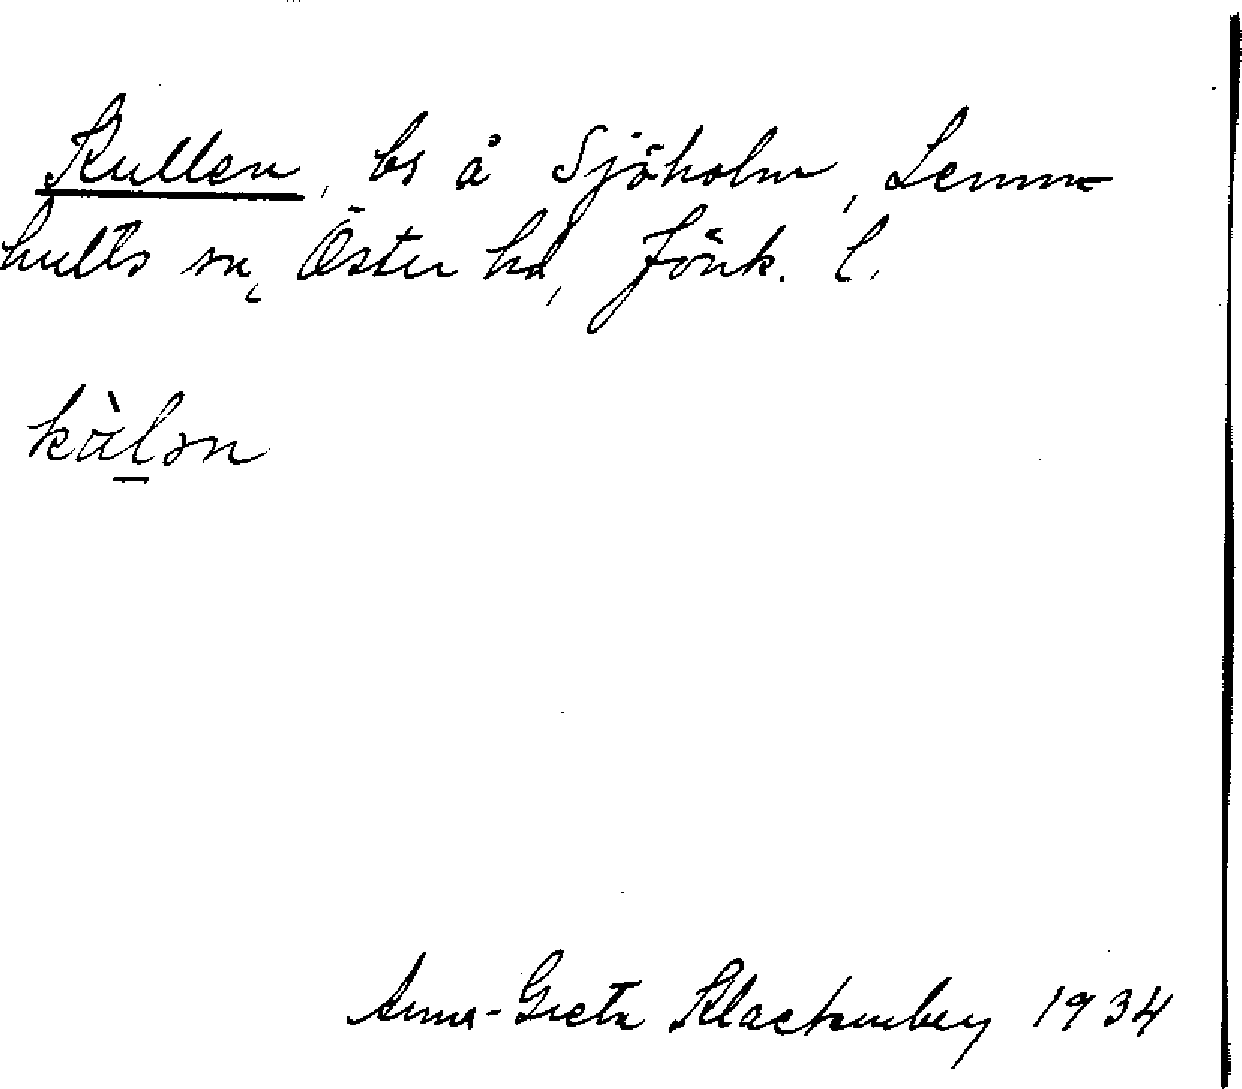 Kullen, bs å Sjöholm, Lemm-
hults sn, Öster hd, Jönk. l.
kàlən
Anna-Greta Klackenberg 1934